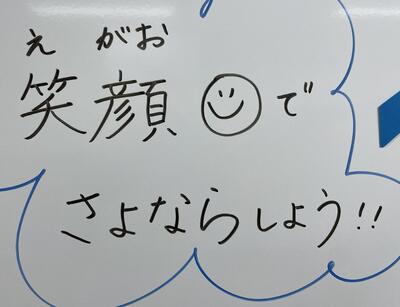 えがお
笑顔☺で
さよならしよう!!